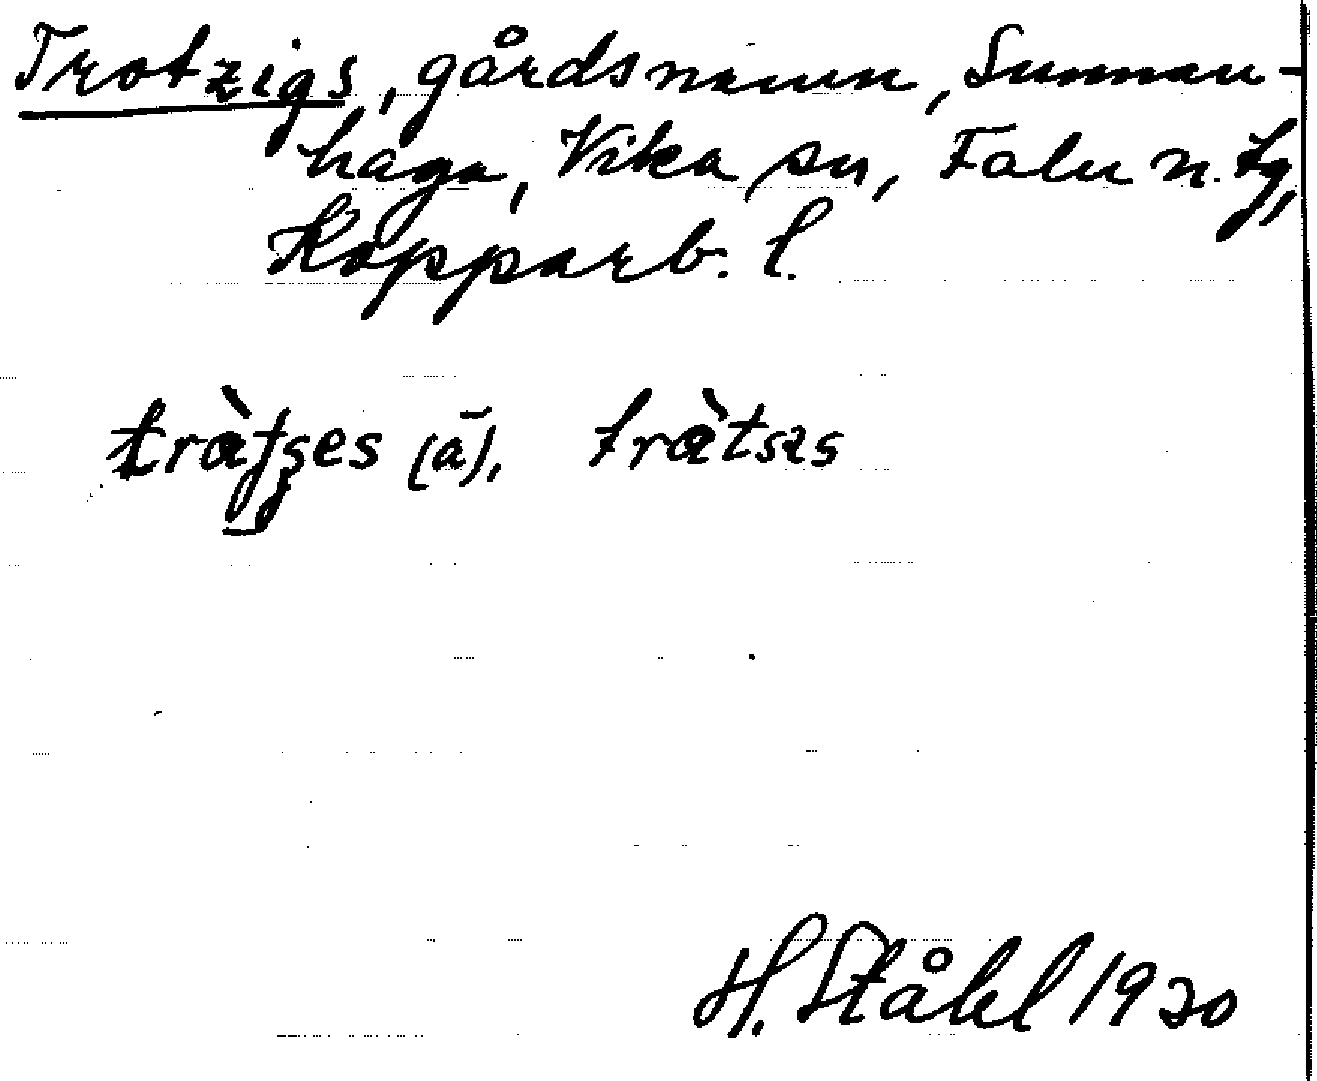 Trotzigs, gårdsnamn, Sunnan-
haga, Vika sn, Falu n. tg,
Kopparb. l.
tràtses (ā), tràtsɩs
H. Ståhl 1930